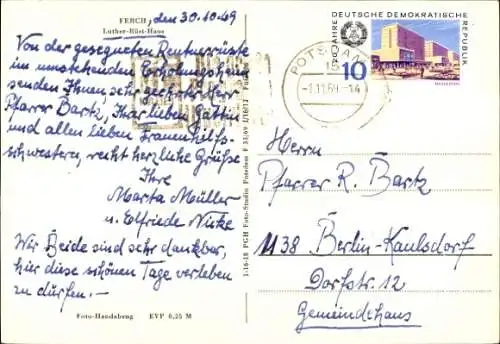 FERCH, den 30.10.69
Luther-Rüst-Haus
Von der gesegneten Rentnerrüste
im umstehenden Erholungsheim
senden Ihnen, sehr geehrter Herr
Pfarrer Bartz, Ihrer lieben Gattin
und allen lieben Frauenhilfs-
schwestern, recht herzliche Grüße
Ihre
Marta Müller
u. Elfriede
Wir Beide sind sehr dankbar,
hier diese schönen Tage verleben
zu dürfen.-
Foto-Handabzug EVP 0,25 M
1-16-18 PGH Foto-Studio Potsdam
DEUTSCHE DEMOKRATISCHE
REPUBLIK
20 JAHRE DDR
10
POTSDAM
-1.11.69-14
Herrn
Pfarrer R. Bartz
1138 Berlin-Kaulsdorf
Dorfstr. 12
Gemeindehaus